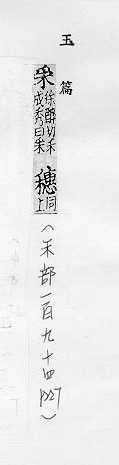 玉篇
采徐醉切禾
成秀曰采
穗同上
（禾部一百九十四p227）